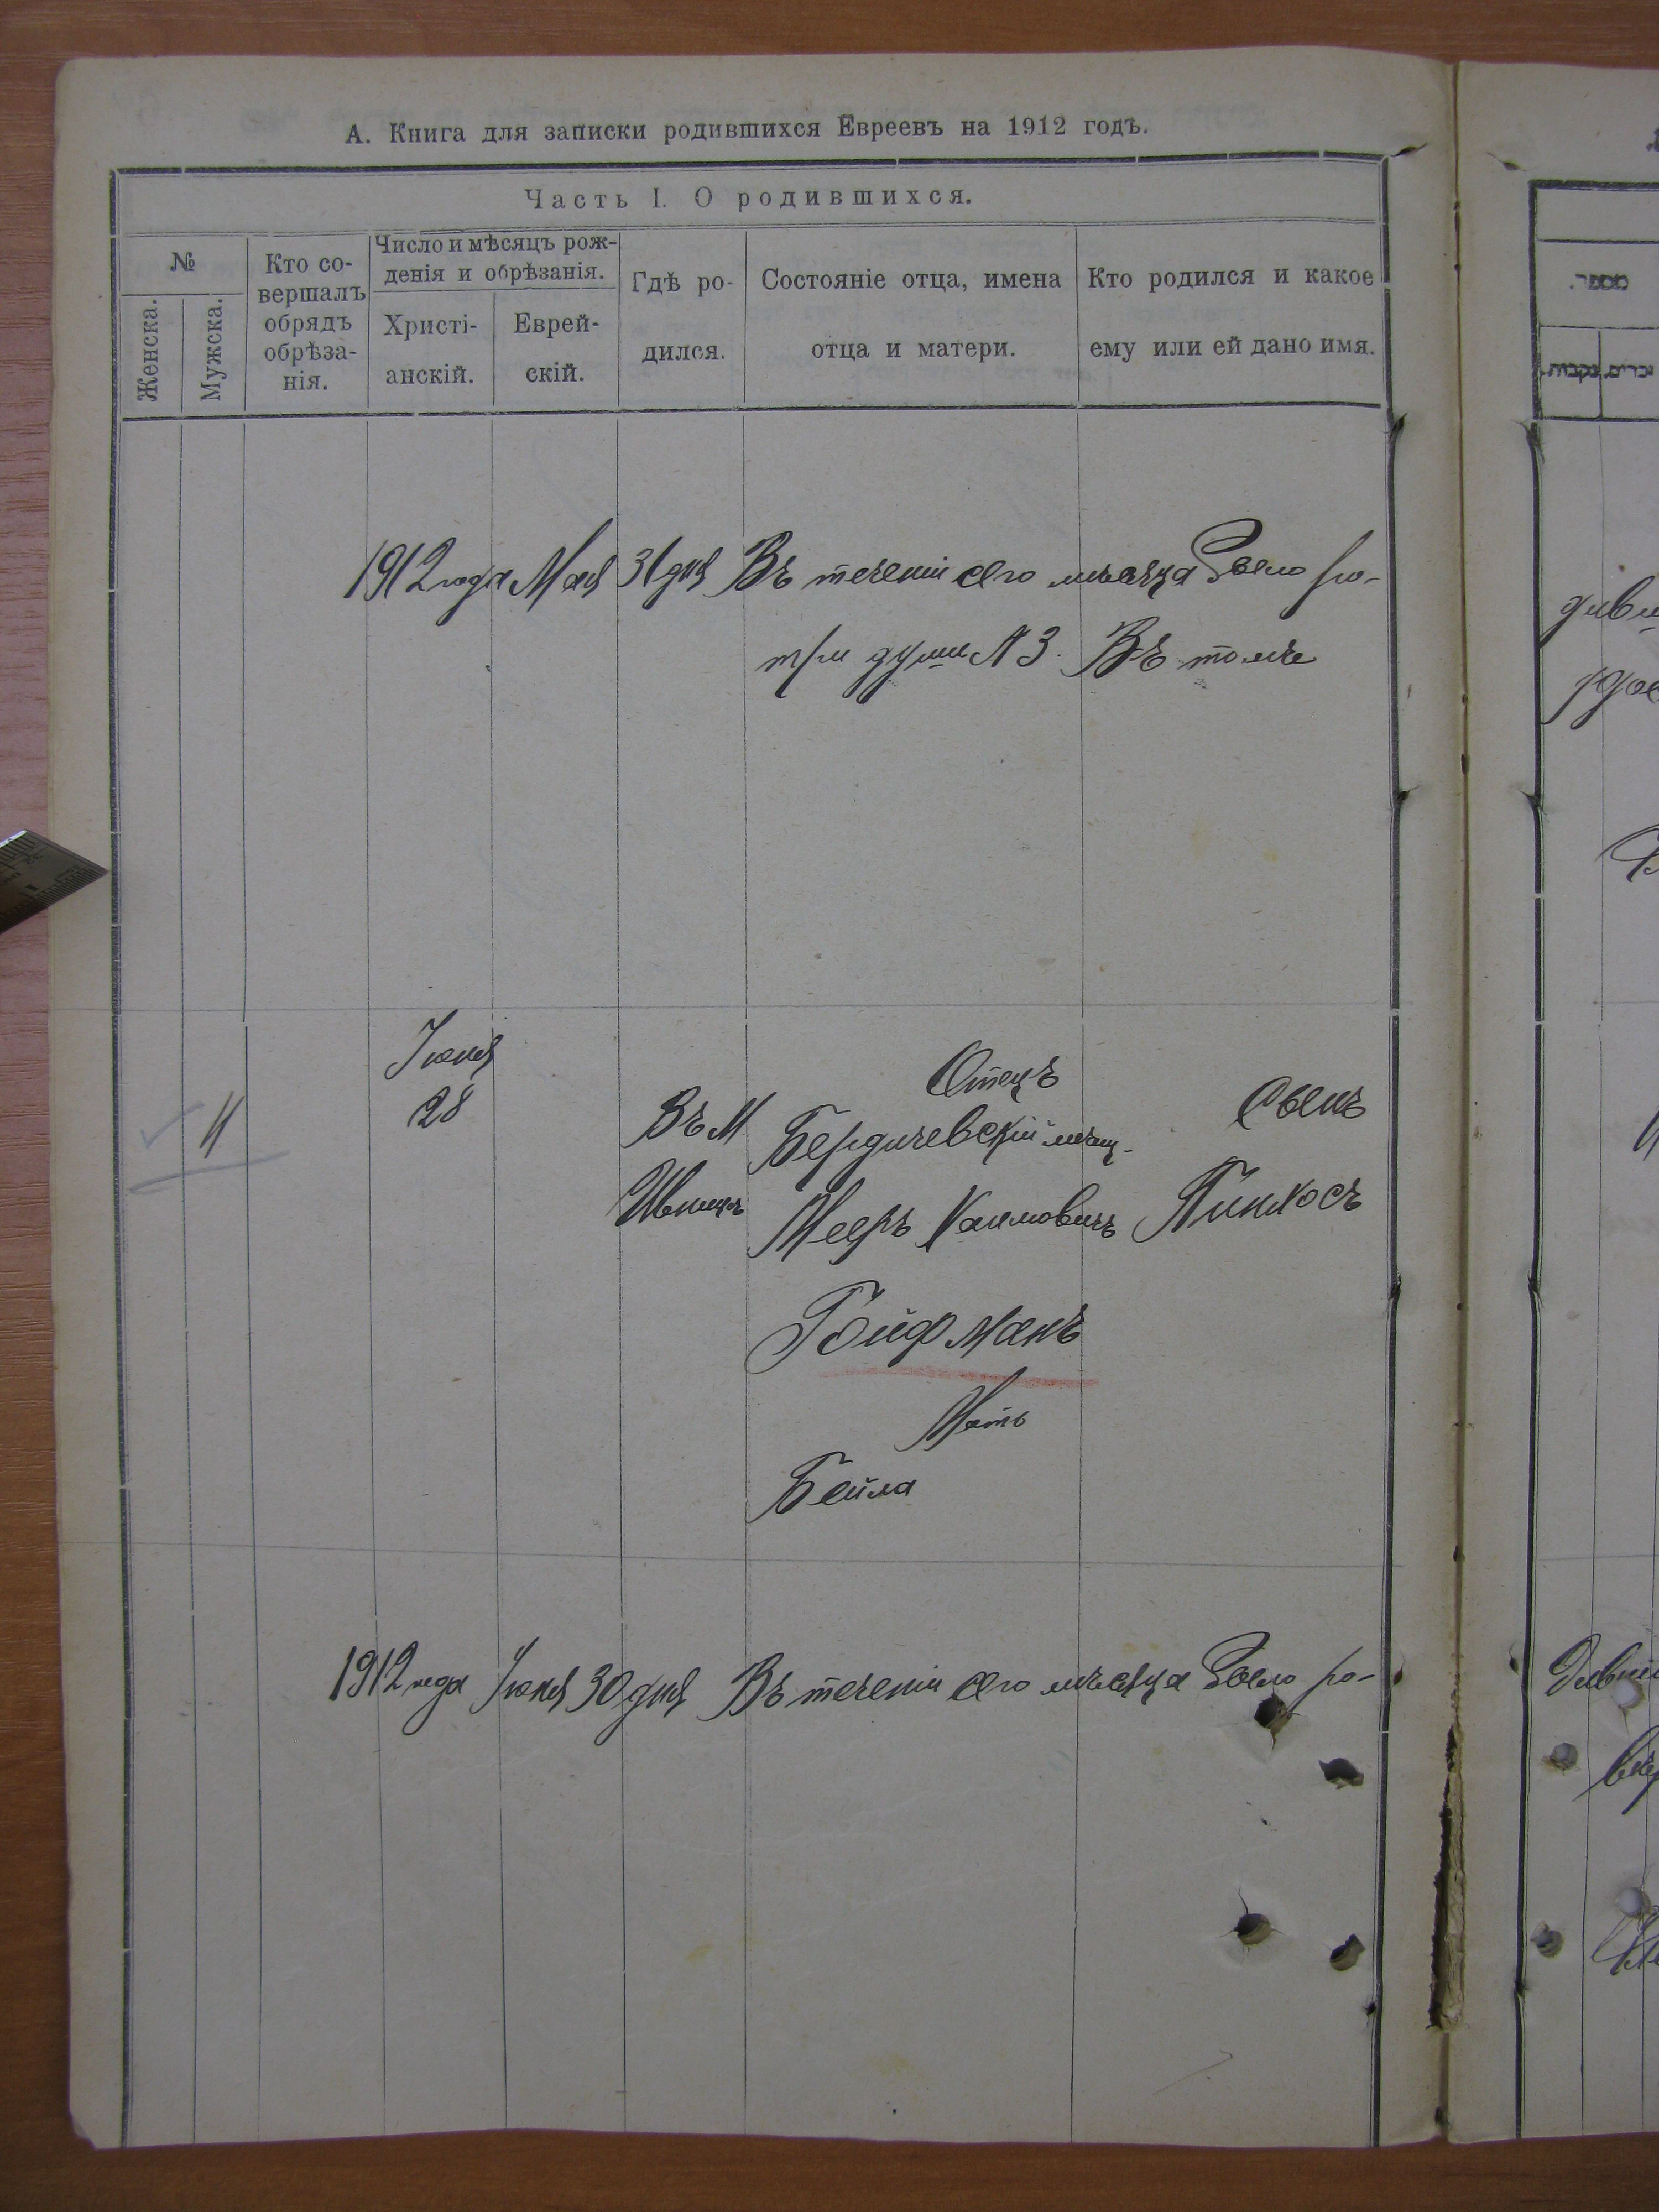 А. Книга для записки родившихся Евреевъ на 1912 годъ.
Часть I. О родившихся.
№
Женска.
Мужска.
Кто со-
вершалъ
обрядъ
обрѣза-
нія.
Число и мѣсяцъ рож-
денія и обрѣзанія.
Христі-
анскій.
Еврей-
скій.
Гдѣ ро-
дился.
Состояніе отца, имена
отца и матери.
Кто родился и какое
ему или ей дано имя.
מספר.
נקבות.
זכרים.
1912 года Мая 31 дня Въ теченіи сего мѣсяца было ро-
три души № 3. Въ томъ
Іюня
28
11
Въ М
Отецъ
Бердичевскій мѣщ.
Мееръ Хаимовичъ
Гойфманъ
Мать
Бейла
Сынъ
Пинхосъ
1912 года Іюня 30 дня Въ теченіи сего мѣсяца было ро-